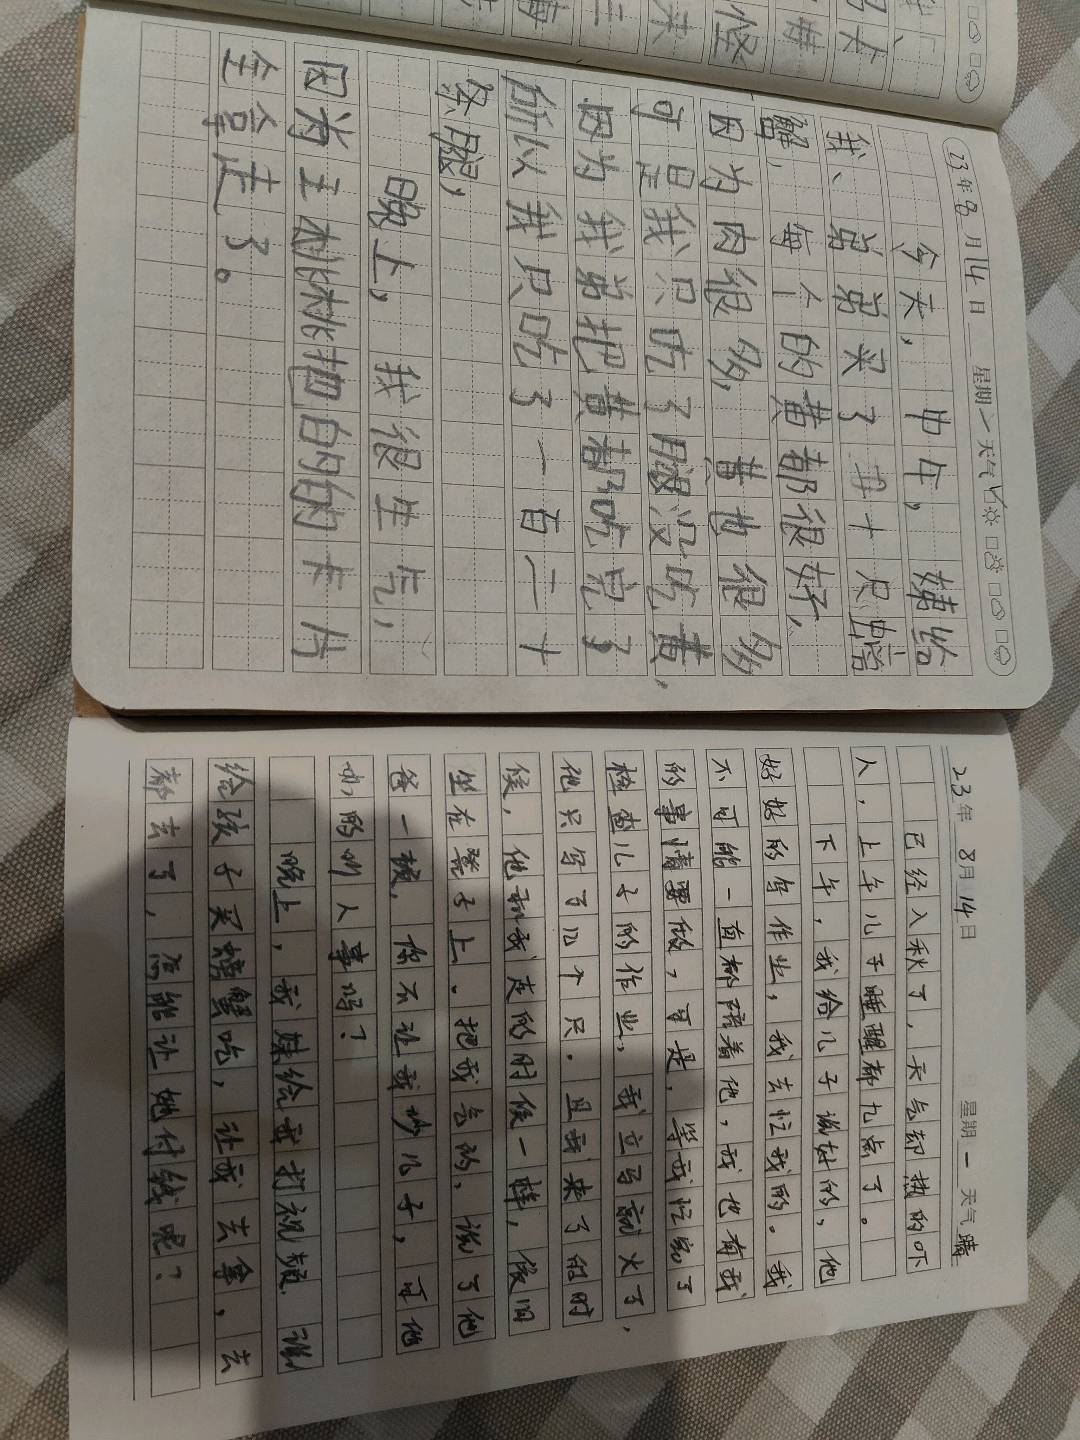 23年8月14日 星期一 天气
今天,中午,姨给
我、弟弟买了三十只螃
蟹,每个的黄都很好、
因为肉很多,黄也很多
可是我只吃了腿没吃黄,
因为我弟把黄都吃完了
所以我只吃了一百二十
条腿,
晚上,我很生气,
因为王林林把白的的卡片
全拿走了。
23年8月14日 星期一 天气 晴
已经入秋了,天气却热的吓
人,上午儿子睡醒都九点了。
下午,我给儿子说好的,他
好好的写作业,我去忙我的。我
不可能一直都陪着他,我也有我
的事情要做,可是,等我忙完了
检查儿子的作业,我立马就火了,
他只写了几个只.且我来了的时
候,他和我走的时候一样,依旧
坐在凳子上。把我气的,说了他
爸一顿,你不让我吵儿子,可他
办的叫人事吗?
晚上,我妹给我打视频.说
给孩子买螃蟹吃,让我去拿,去
都去了,焉能让她付钱呢?